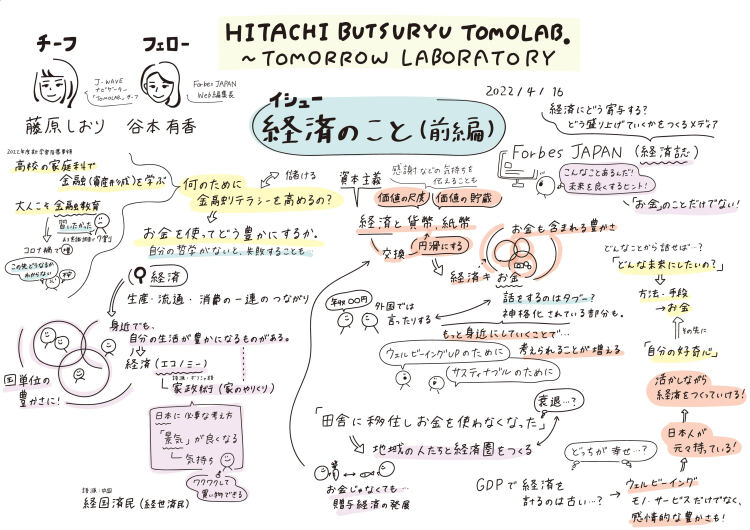 HITACHI BUTSURYU TOMOLAB.
~TOMORROW LABORATORY
チーフ
フェロー
J-WAVE
ナビゲーター
「TOMOLAB.」チーフ
Forbes JAPAN
Web編集長
藤原しおり
谷本有香
2022/4/16
イシュー
経済のこと(前編)
経済にどう寄与する?
どう盛り上げていくかをつくるメディア
Forbes JAPAN (経済誌)
こんなことあるんだ!
未来を良くするヒント!
「お金」のことだけでない!
高校の家庭科で
金融(資産形成)を学ぶ
大人こそ金融教育
習いたかった
7割
コロナ禍で増
この先どうなるか
わからない
儲ける
何のために
金融リテラシーを高めるの?
お金を使ってどう豊かにするか。
自分の哲学がないと、失敗することも
資本主義
感謝などの気持ちを
伝えることも
価値の尺度
価値の貯蔵
経済と貨幣、紙幣
交換
円滑にする
経済≠お金
お金も含まれる豊かさ
どんなことから話せば…?
「どんな未来にしたいの?」
方法・手段
→お金
その先に
「自分の好奇心」
活かしながら
経済をつくっていける!
日本人が
元々持っている!
経済
生産・流通・消費の一連のつながり
身近でも、
自分の生活が豊かになるものがある。
国単位の
豊かさに!
経済(エコノミー)
語源・ギリシャ語
家政術(家のやりくり)
日本に必要な考え方
「景気」が良くなる
気持ち
ワクワクして
買い物できる
語源・中国
経国済民(経世済民)
年収〇〇円
外国では
言ったりする
話をするのはタブー?
神格化されている部分も。
もっと身近にしていくことで…
考えられることが増える
ウェルビーイングUPのために
サスティナブルのために
衰退…?
「田舎に移住しお金を使わなくなった」
地域の人たちと経済圏をつくる
お金じゃなくても…
贈与経済の発展
どっちが幸せ…?
GDPで経済を
計るのは古い…?
ウェルビーイング
モノ・サービスだけでなく、
感情的な豊かさも!